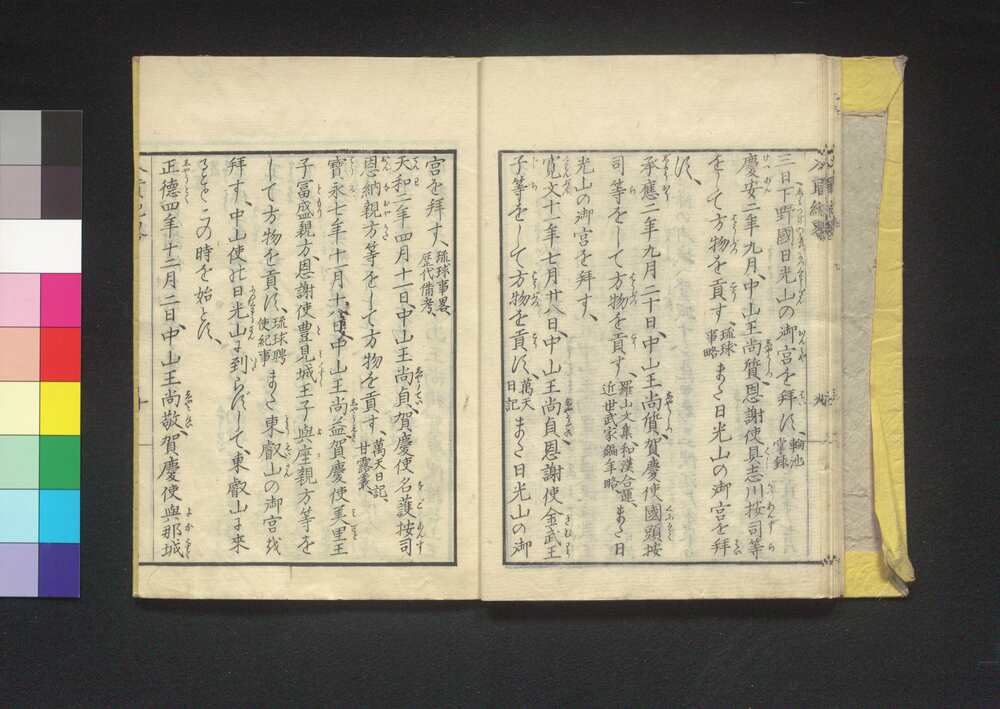 三日下野國日光山の御宮を拜す、輪池掌録
慶安二年九月、中山王尚質、恩謝使具志川按司等
をして方物を貢す、琉球事略 また日光山の御宮を拜
す、
承應二年九月二十日、中山王尚質、賀慶使國頭按
司等をして方物を貢す、羅山文集和漢合運、近世武家編年略 また日
光山の御宮を拜す、
寛文十一年七月廿八日、中山王尚貞恩謝使金武王
子等をして方物を貢す、萬天日記 また日光山の御
宮を拜す、琉球事畧、歴代備考、
天和二年四月十一日、中山王尚貞、賀慶使名護按司
恩納親方等をして方物を貢す、萬天日記、甘露叢、
寶永七年十一月十八日、中山王尚益賀慶使美里王
子冨盛親方、恩謝使豊見城王子與座親方等を
して方物を貢す、琉球聘使紀事 また東叡山の御宮を
拜す、中山使の日光山に到らずして東叡山に來
ること、この時を始とす、
正德四年十二月二日、中山王尚敬、賀慶使與那城